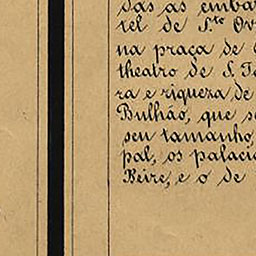 das as embar
tel de S.to Ov
na praça de
theatro de S. Jo
ra e riqueza de
Bulhão, que s
seu tamanho,
pal, os palaci
Beire, e o de